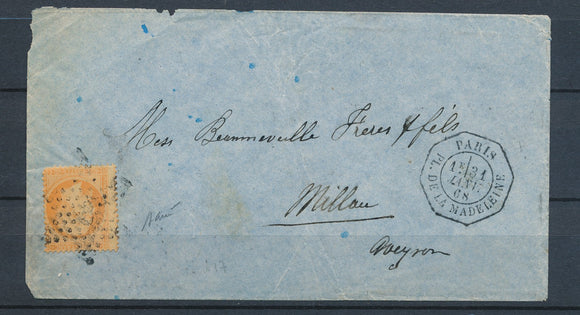 Mess Beaumevielle Frères & fils
Millau
Aveyron
PARIS
1E 31
JANV.
68
PL. DE LA MADELEINE